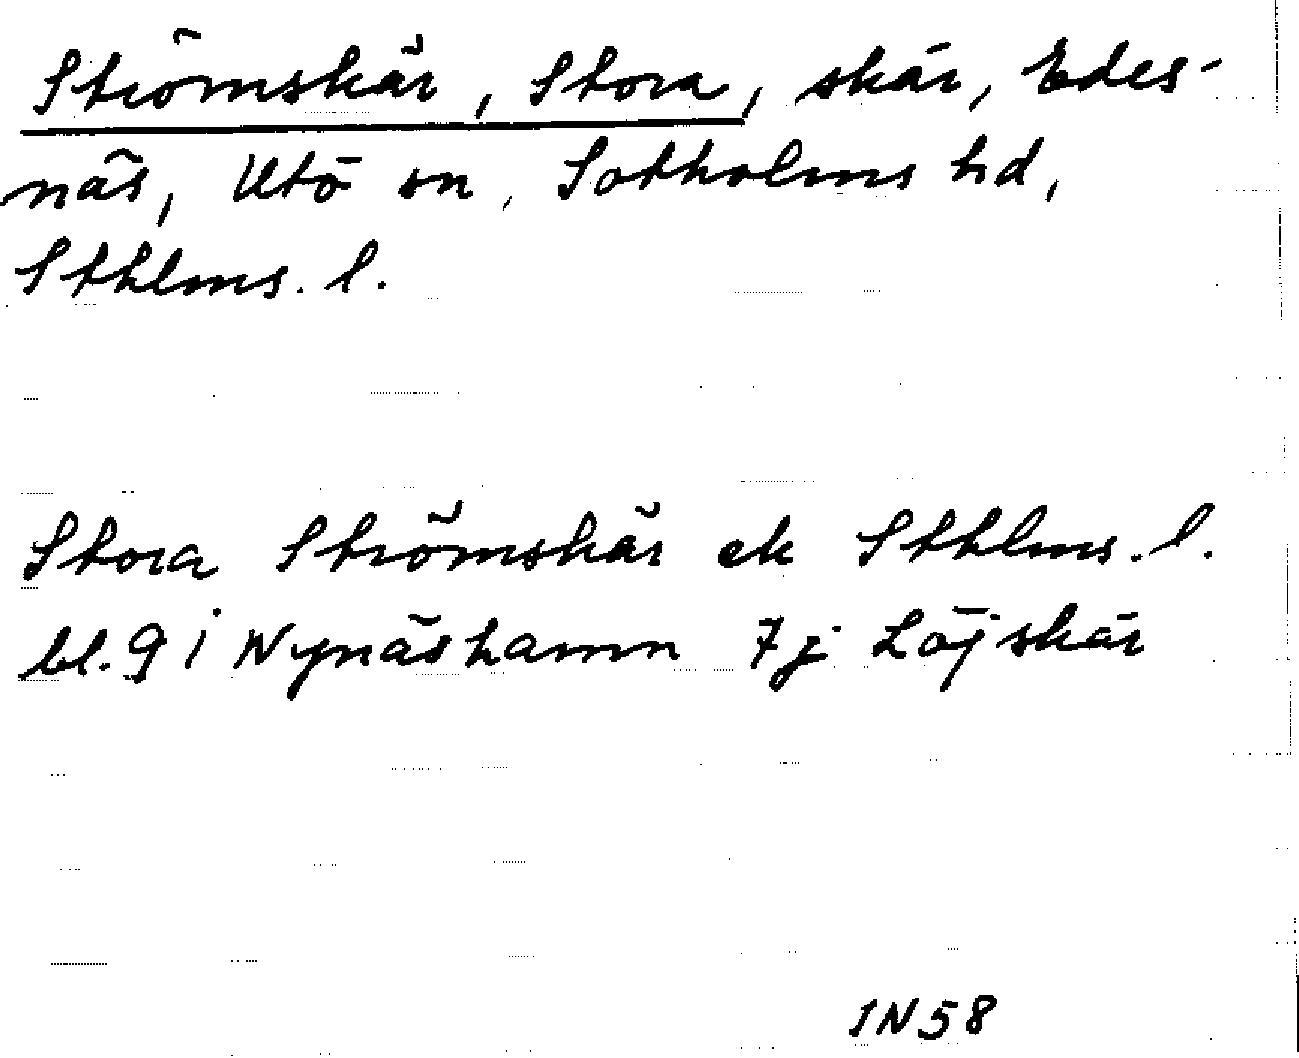 Strömskär, Stora, skär, Edes-
näs, Utö sn, Sotholms hd,
Sthlms. l.
Stora Strömskär ek Sthlms. l.
bl. 9 i Nynäshamn 7j Löjskär
IN58